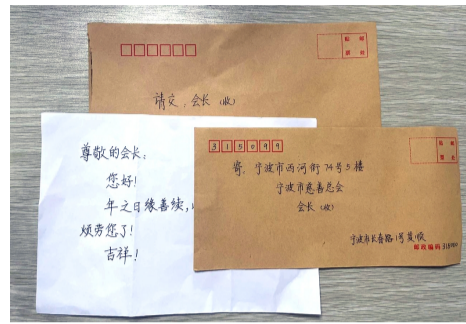 贴 邮
票 处
请交：会长（收）
尊敬的会长：
您好！
年之日缘善续，
烦劳您了！
吉祥！
315099
贴 邮
票 处
寄：宁波市西河街74号5楼
宁波市慈善总会
会长（收）
宁波市长春路1号黄
邮政编码